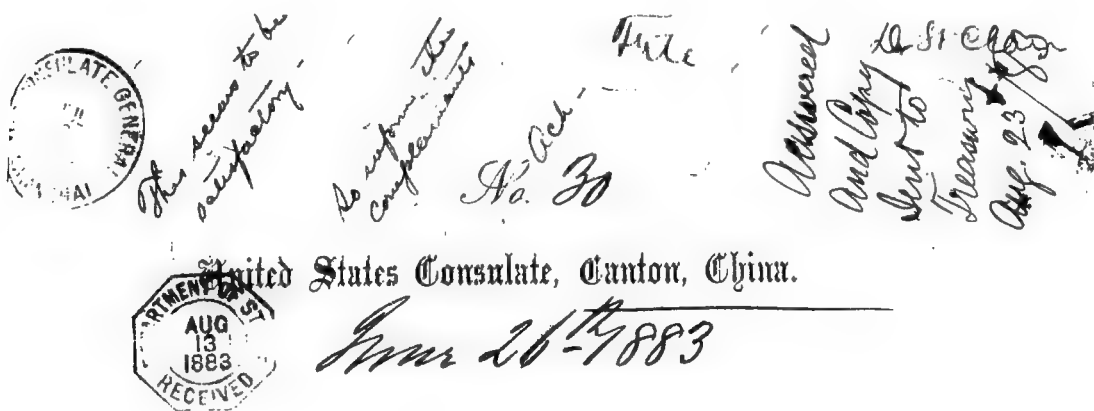 CONSULATE GENERAL
HAI
This seems to be
satisfactory.
So inform the
complainants
Ack.
File
No. 30
Answered
and Copy
Sent to
Treasury
Aug. 23
United States Consulate, Canton, China.
DEPARTMENT OF ST
AUG
13
1883
RECEIVED
June 26th 1883